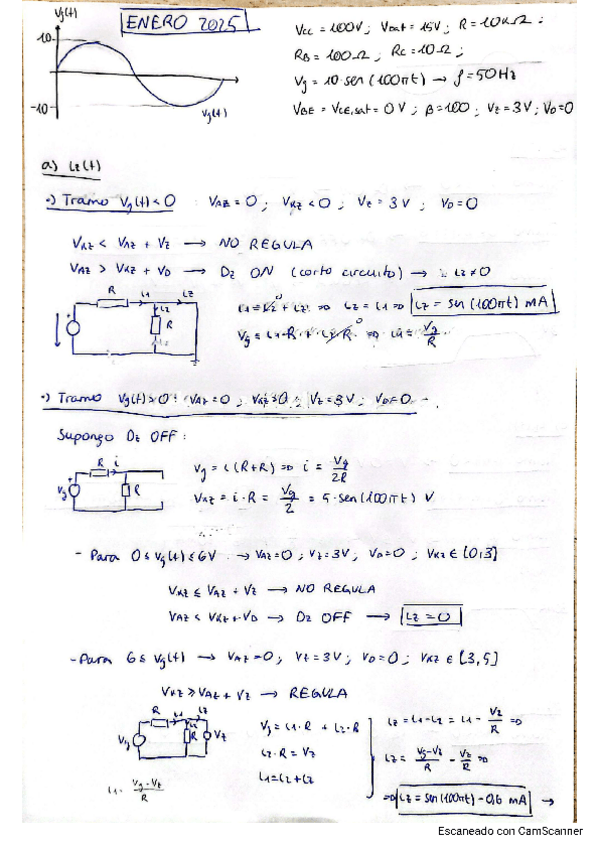 Vg(t)
ENERO 2025
10
-10
Vg(t)
Vcc = 100V ; Vbat = 15V ; R = 10kΩ ;
RB = 100Ω ; Rc = 10Ω ;
Vg = 10·sen(100πt) → f = 50Hz
VBE = VCE,sat = 0V ; β = 100 ; Vz = 3V ; VD = 0
a) iz(t)
·) Tramo Vg(t) < 0 : VAZ = 0 ; VKZ < 0 ; Vz = 3V ; VD = 0
VKZ < VAZ + Vz → NO REGULA
VAZ > VKZ + VD → Dz ON (corto circuito) → iz ≠ 0
R i1 iz
i2
R
i1 = i2 + iz ⇒ iz = i1 ⇒ iz = sen(100πt) mA
0
Vg = i1·R + i2·R ⇒ i1 = Vg/R
0
·) Tramo Vg(t) > 0 : VAZ = 0 ; VKZ > 0 ; Vz = 3V ; VD = 0
Supongo Dz OFF :
R i
Vg
R
Vg = i(R+R) ⇒ i = Vg/2R
VKZ = i·R = Vg/2 = 5·sen(100πt) V
- Para 0 ≤ Vg(t) ≤ 6V → VAZ = 0 ; Vz = 3V ; VD = 0 ; VKZ ∈ [0,3]
VKZ ≤ VAZ + Vz → NO REGULA
VAZ < VKZ + VD → Dz OFF → iz = 0
- Para 6 ≤ Vg(t) → VAZ = 0 ; Vz = 3V ; VD = 0 ; VKZ ∈ [3,5]
VKZ ≥ VAZ + Vz → REGULA
R i1 iz
i2
Vg
R
Vz
i1 = Vg-Vz/R
Vg = i1·R + i2·R
i2·R = Vz
i1 = i2 + iz
iz = i1 - i2 = i1 - Vz/R ⇒
iz = Vg-Vz/R - Vz/R ⇒
⇒ iz = sen(100πt) - 0,6 mA →
Escaneado con CamScanner